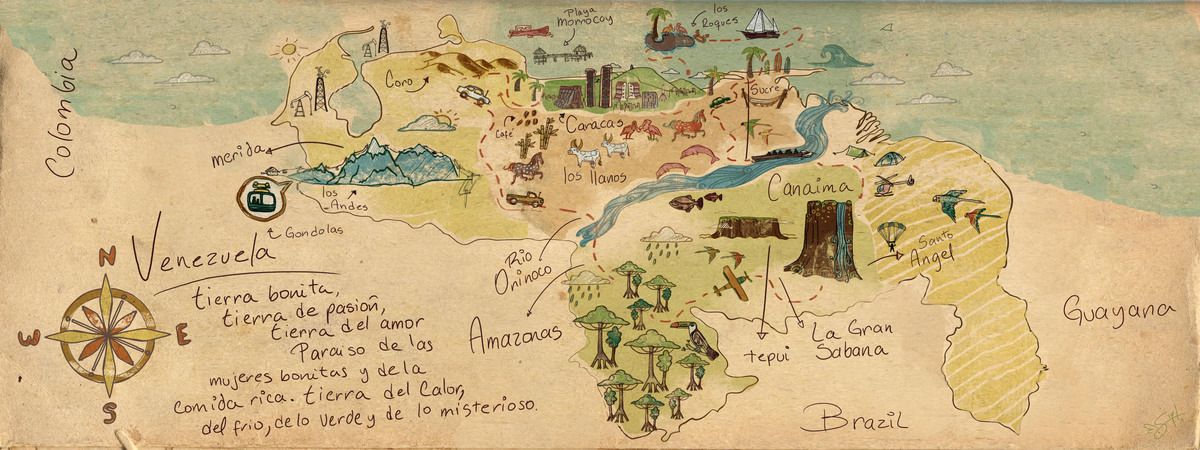 Playa
Morrocoy
los
Roques
Colombia
Coro
Sucre
Café
Caracas
merida
los llanos
Canaima
los
-Andes
Gondolas
Santo
Angel
Venezuela
Rio
Orinoco
N
W
E
S
tierra bonita,
tierra de pasioñ,
tierra del amor
Paraiso de las
mujeres bonitas y de la
comida rica. tierra del Calor,
del frio, de lo verde y de lo misterioso.
Amazonas
tepui
La Gran
Sabana
Guayana
Brazil